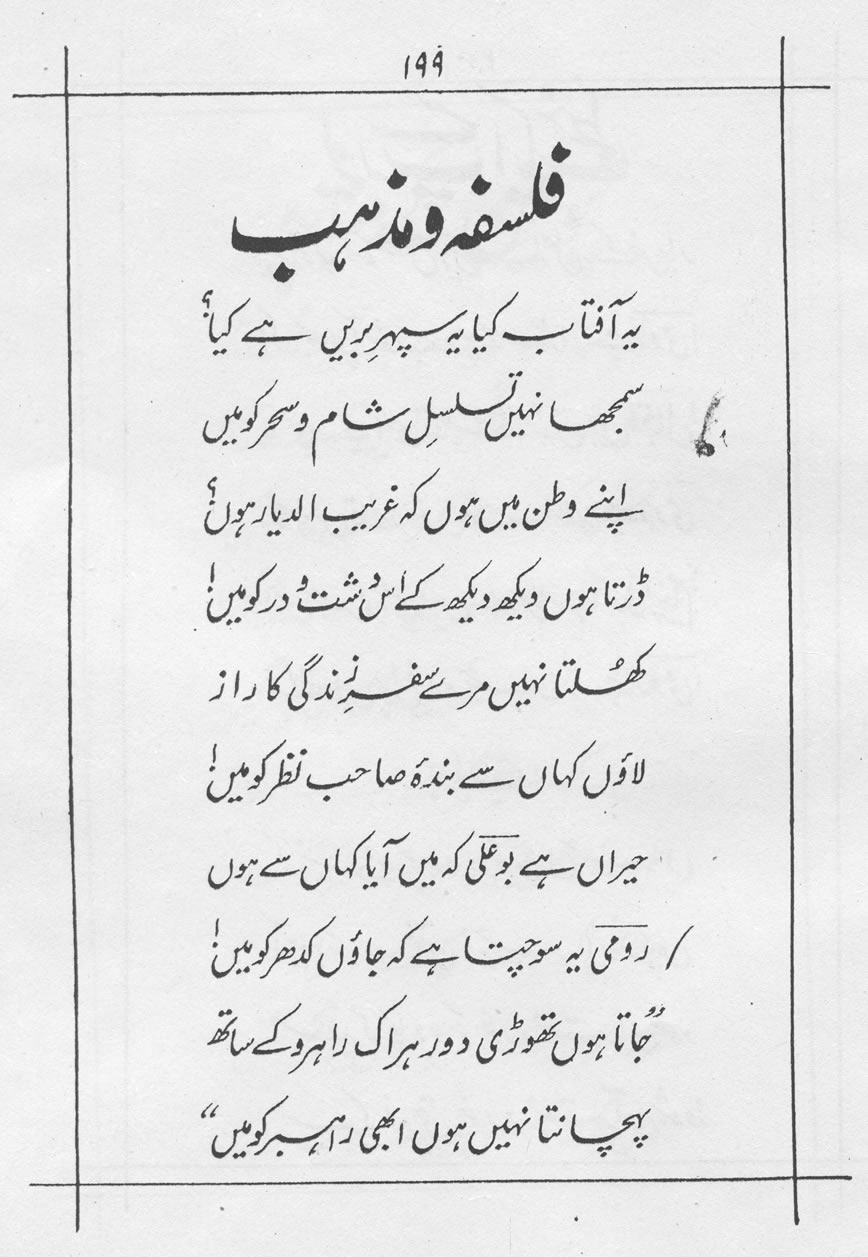 ۱۹۹
فلسفہ و مذہب
یہ آفتاب کیا یہ سپہرِ بریں ہے کیا؟
سمجھا نہیں تسلسلِ شام و سحر کو میں
اپنے وطن میں ہوں کہ غریب الدیار ہوں؟
ڈرتا ہوں دیکھ دیکھ کے اس دشت و در کو میں!
کھُلتا نہیں مرے سفرِ زندگی کا راز
لاؤں کہاں سے بندۂ صاحب نظر کو میں!
حیراں ہے بو علی کہ میں آیا کہاں سے ہوں
رومی یہ سوچتا ہے کہ جاؤں کدھر کو میں!
”جاتا ہوں تھوڑی دور ہر اک راہرو کے ساتھ
پہچانتا نہیں ہوں ابھی راہبر کو میں“